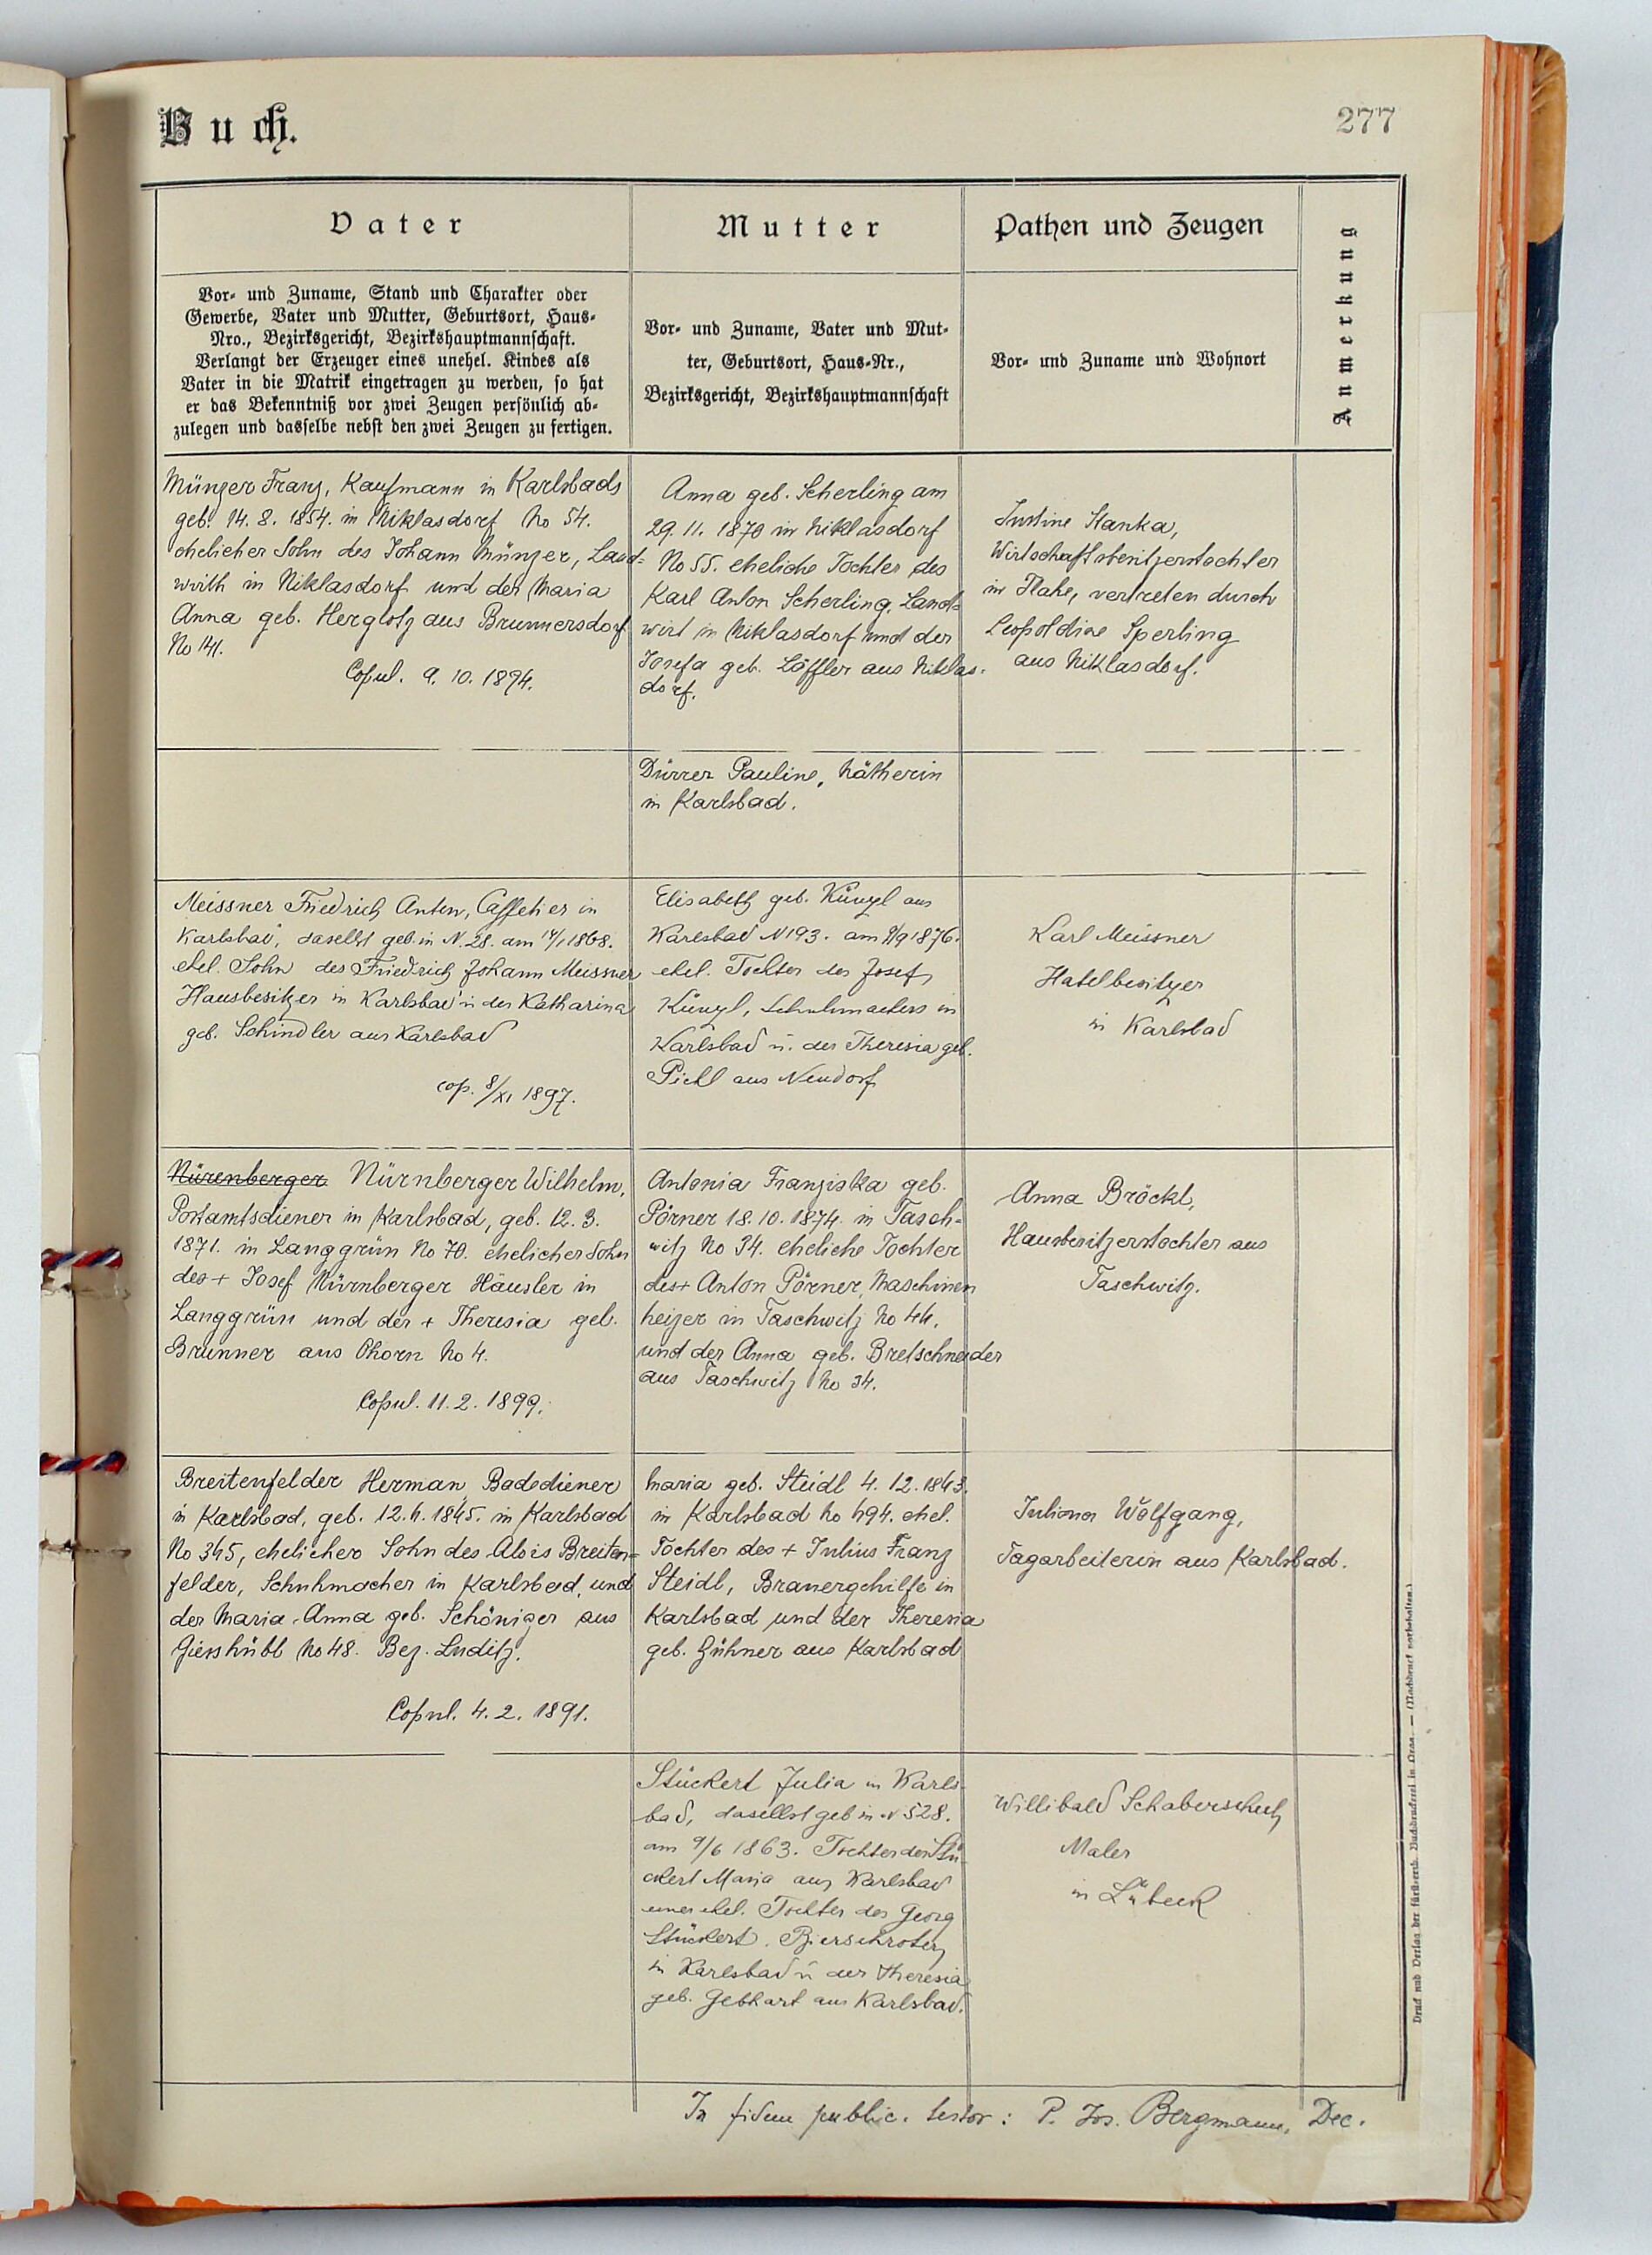 Buch.
277
Vater
Mutter
Pathen und Zeugen
Anmerkung
Vor- und Zuname, Stand und Charakter oder
Gewerbe, Vater und Mutter, Geburtsort, Haus-
Nro., Bezirksgericht, Bezirkshauptmannschaft.
Verlangt der Erzeuger eines unehel. Kindes als
Vater in die Matrik eingetragen zu werden, so hat
er das Bekenntniß vor zwei Zeugen persönlich ab-
zulegen und dasselbe nebst den zwei Zeugen zu fertigen.
Vor- und Zuname, Vater und Mut-
ter, Geburtsort, Haus-Nr.,
Bezirksgericht, Bezirkshauptmannschaft
Vor- und Zuname und Wohnort
Münzer Franz, Kaufmann in Karlsbads
geb. 14. 8. 1854. in Niklasdorf No 54.
ehelicher Sohn des Johann Münzer, Land-
wirth in Niklasdorf und der Maria
Anna geb. Herglotz aus Brunnersdorf
No 141.
Copul. 9. 10. 1894.
Anna geb. Scherling am
29. 11. 1870 in Niklasdorf
No 55. eheliche Tochter des
Karl Anton Scherling, Land-
wirt in Niklasdorf und der
Josefa geb. Löffler aus Niklas-
dorf.
Justine Stanka,
Wirtschaftsbesitzerstochter
in , vertreten durch
Leopoldine Sperling
aus Niklasdorf.
Dürrer Pauline, Nätherin
in Karlsbad.
Meissner Friedrich Anton, Caffetier in
Karlsbad, daselbst geb. in N. 28. am 1868.
ehel. Sohn des Friedrich Johann Meissner
Hausbesitzer in Karlsbad u der Katharina
geb. Schindler aus Karlsbad
cop. 8/XI 1897.
Elisabeth geb. Künzl aus
Karlsbad N 193. am 9/9 1876.
ehel. Tochter des Josef
Künzl, Schuhmachers in
Karlsbad u. der Theresia geb.
Pichl aus Neudorf
Karl Meissner
Hotelbesitzer
in Karlsbad
Nürenberger Nürnberger Wilhelm,
Postamtsdiener in Karlsbad, geb. 12. 3.
1871. in Langgrün No 70. ehelicher Sohn
des + Josef Nürnberger Häusler in
Langgrün und der + Theresia geb.
Brunner aus Ohorn No 4.
Copul. 11. 2. 1899.
Antonia Franziska geb.
Pörner 18. 10. 1874. in Tasch-
witz No 34. eheliche Tochter
des + Anton Pörner, Maschinen
heizer in Taschwitz No 44,
und der Anna geb. Bretschneider
aus Taschwitz No 34.
Anna Bröckl,
Hausbesitzerstochter aus
Taschwitz.
Breitenfelder Herman, Badediener
in Karlsbad, geb. 12. 4. 1845. in Karlsbad
No 345, ehelicher Sohn des Alois Breiten-
felder, Schuhmacher in Karlsbad, und
der Maria Anna geb. Schöniger aus
Giesshübl No 48. Bez. Luditz.
Copul. 4. 2. 1891.
Maria geb. Steidl 4. 12. 1863.
in Karlsbad No 494. ehel.
Tochter des + Julius Franz
Steidl, Brauergehilfe in
Karlsbad und der Theresia
geb. Hühner aus Karlsbad
Juliana Wolfgang,
Tagarbeiterin aus Karlsbad.
Stückert Julia in Karls-
bad, daselbst geb in N 528.
am 9/6 1863. Tochter der Stü-
ckert Maria aus Karlsbad
einer ehel. Tochter des Georg
Stückert, Bierschroters
in Karlsbad u der Theresia
geb. Gebhart aus Karlsbad.
Willibald
Maler
in Lübeck
In fidem public. testor: P. Jos. Bergmann, Dec.
Druck und Verlag der fürsterzb. Buchdruckerei in Prag. — (Nachdruck vorbehalten.)